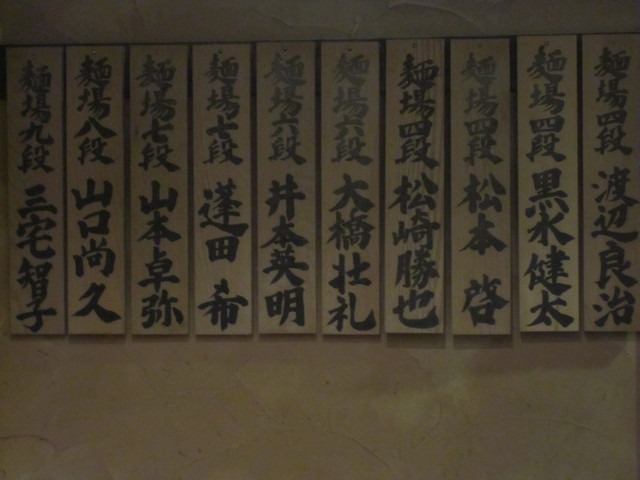 麺場四段 渡辺良治
麺場四段 黒水健太
麺場四段 松本 啓
麺場四段 松崎勝也
麺場六段 大橋壮礼
麺場六段 井本英明
麺場七段 蓬田 希
麺場七段 山本卓弥
麺場八段 山口尚久
麺場九段 三宅智子